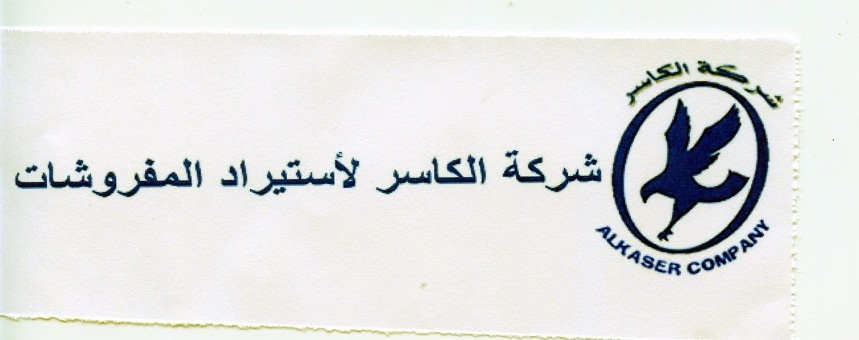 شركة الكاسر
شركة الكاسر لأستيراد المفروشات
ALKASER COMPANY